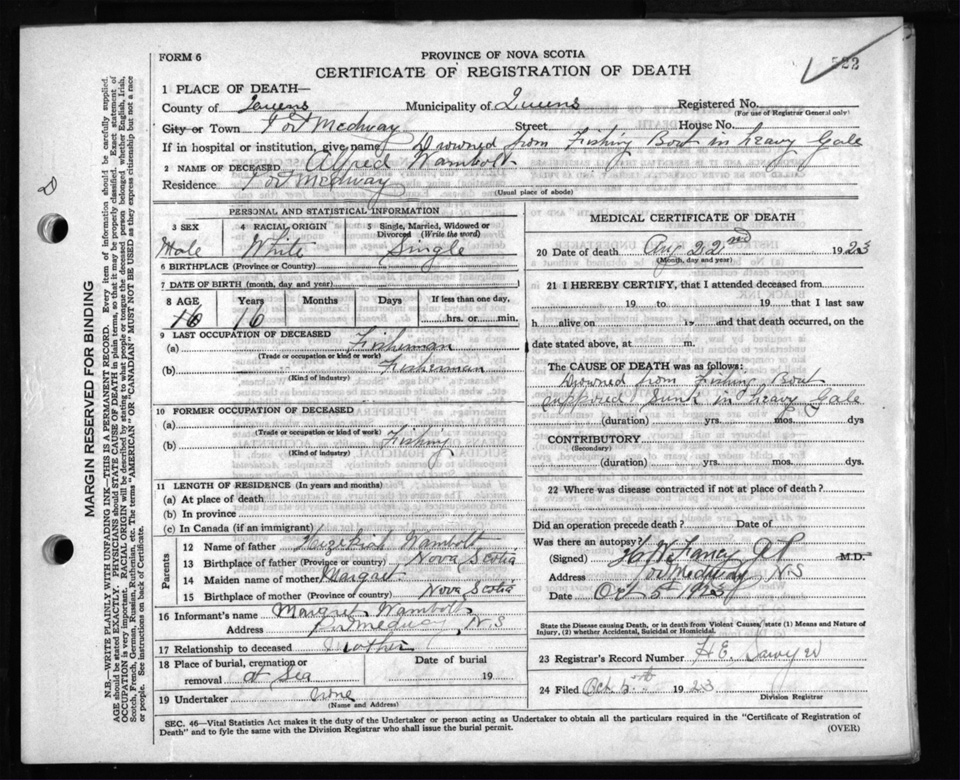 FORM 6
PROVINCE OF NOVA SCOTIA
CERTIFICATE OF REGISTRATION OF DEATH
522
1 PLACE OF DEATH—
County of Queens Municipality of Queens Registered No.
(For use of Registrar General only)
City or Town Port Medway Street House No.
If in hospital or institution, give name Drowned from Fishing Boat in heavy Gale
2 NAME OF DECEASED Alfred Wambolt
Residence Port Medway
(Usual place of abode)
PERSONAL AND STATISTICAL INFORMATION
3 SEX 4 RACIAL ORIGIN 5 Single, Married, Widowed or Divorced (Write the word)
Male White Single
6 BIRTHPLACE (Province or Country)
7 DATE OF BIRTH (month, day and year)
8 AGE Years Months Days If less than one day,
16 16 hrs. or min.
9 LAST OCCUPATION OF DECEASED
(a) Fisherman
(Trade or occupation or kind or work)
(b) Fisherman
(Kind of industry)
10 FORMER OCCUPATION OF DECEASED
(a)
(Trade or occupation or kind of work)
(b) Fishing
(Kind of industry)
11 LENGTH OF RESIDENCE (In years and months)
(a) At place of death
(b) In province
(c) In Canada (if an immigrant)
Parents
12 Name of father Hezekiah Wambolt
13 Birthplace of father (Province or country) Nova Scotia
14 Maiden name of mother Margret
15 Birthplace of mother (Province or country) Nova Scotia
16 Informant's name Margret Wambolt
Address Port Medway, N S
17 Relationship to deceased Mother
18 Place of burial, cremation or removal at Sea Date of burial 19
19 Undertaker None
(Name and Address)
MEDICAL CERTIFICATE OF DEATH
20 Date of death Aug 22nd 1923
(Month, day and year)
21 I HEREBY CERTIFY, that I attended deceased from
19 to 19 that I last saw
h alive on 19 and that death occurred, on the
date stated above, at m.
The CAUSE OF DEATH was as follows:
Drowned from Fishing Boat
supposed Sunk in heavy Gale
(duration) yrs. mos. dys
CONTRIBUTORY
(Secondary)
(duration) yrs. mos. dys.
22 Where was disease contracted if not at place of death?
Did an operation precede death? Date of
Was there an autopsy?
(Signed) M.D.
Address Port Medway N S
Date Oct 5th 1923
State the Disease causing Death, or in death from Violent Causes, state (1) Means and Nature of
Injury, (2) whether Accidental, Suicidal or Homicidal.
23 Registrar's Record Number H E. Sawyer
24 Filed Oct. 5th 1923
Division Registrar
SEC. 46—Vital Statistics Act makes it the duty of the Undertaker or person acting as Undertaker to obtain all the particulars required in the "Certificate of Registration of
Death" and to fyle the same with the Division Registrar who shall issue the burial permit.
(OVER)
MARGIN RESERVED FOR BINDING
N.B.—WRITE PLAINLY WITH UNFADING INK—THIS IS A PERMANENT RECORD. Every item of information should be carefully supplied.
AGE should be stated EXACTLY. PHYSICIANS should STATE CAUSE OF DEATH in plain terms, so that it may be properly classified. Exact statement of
OCCUPATION is very important. RACIAL ORIGIN will be described by stating to what people or tongue the deceased person belonged whether English, Irish,
Scotch, French, German, Russian, Ruthenian, etc. The terms "AMERICAN" OR "CANADIAN" MUST NOT BE USED as they express citizenship but not a race
or people. See instructions on back of Certificate.